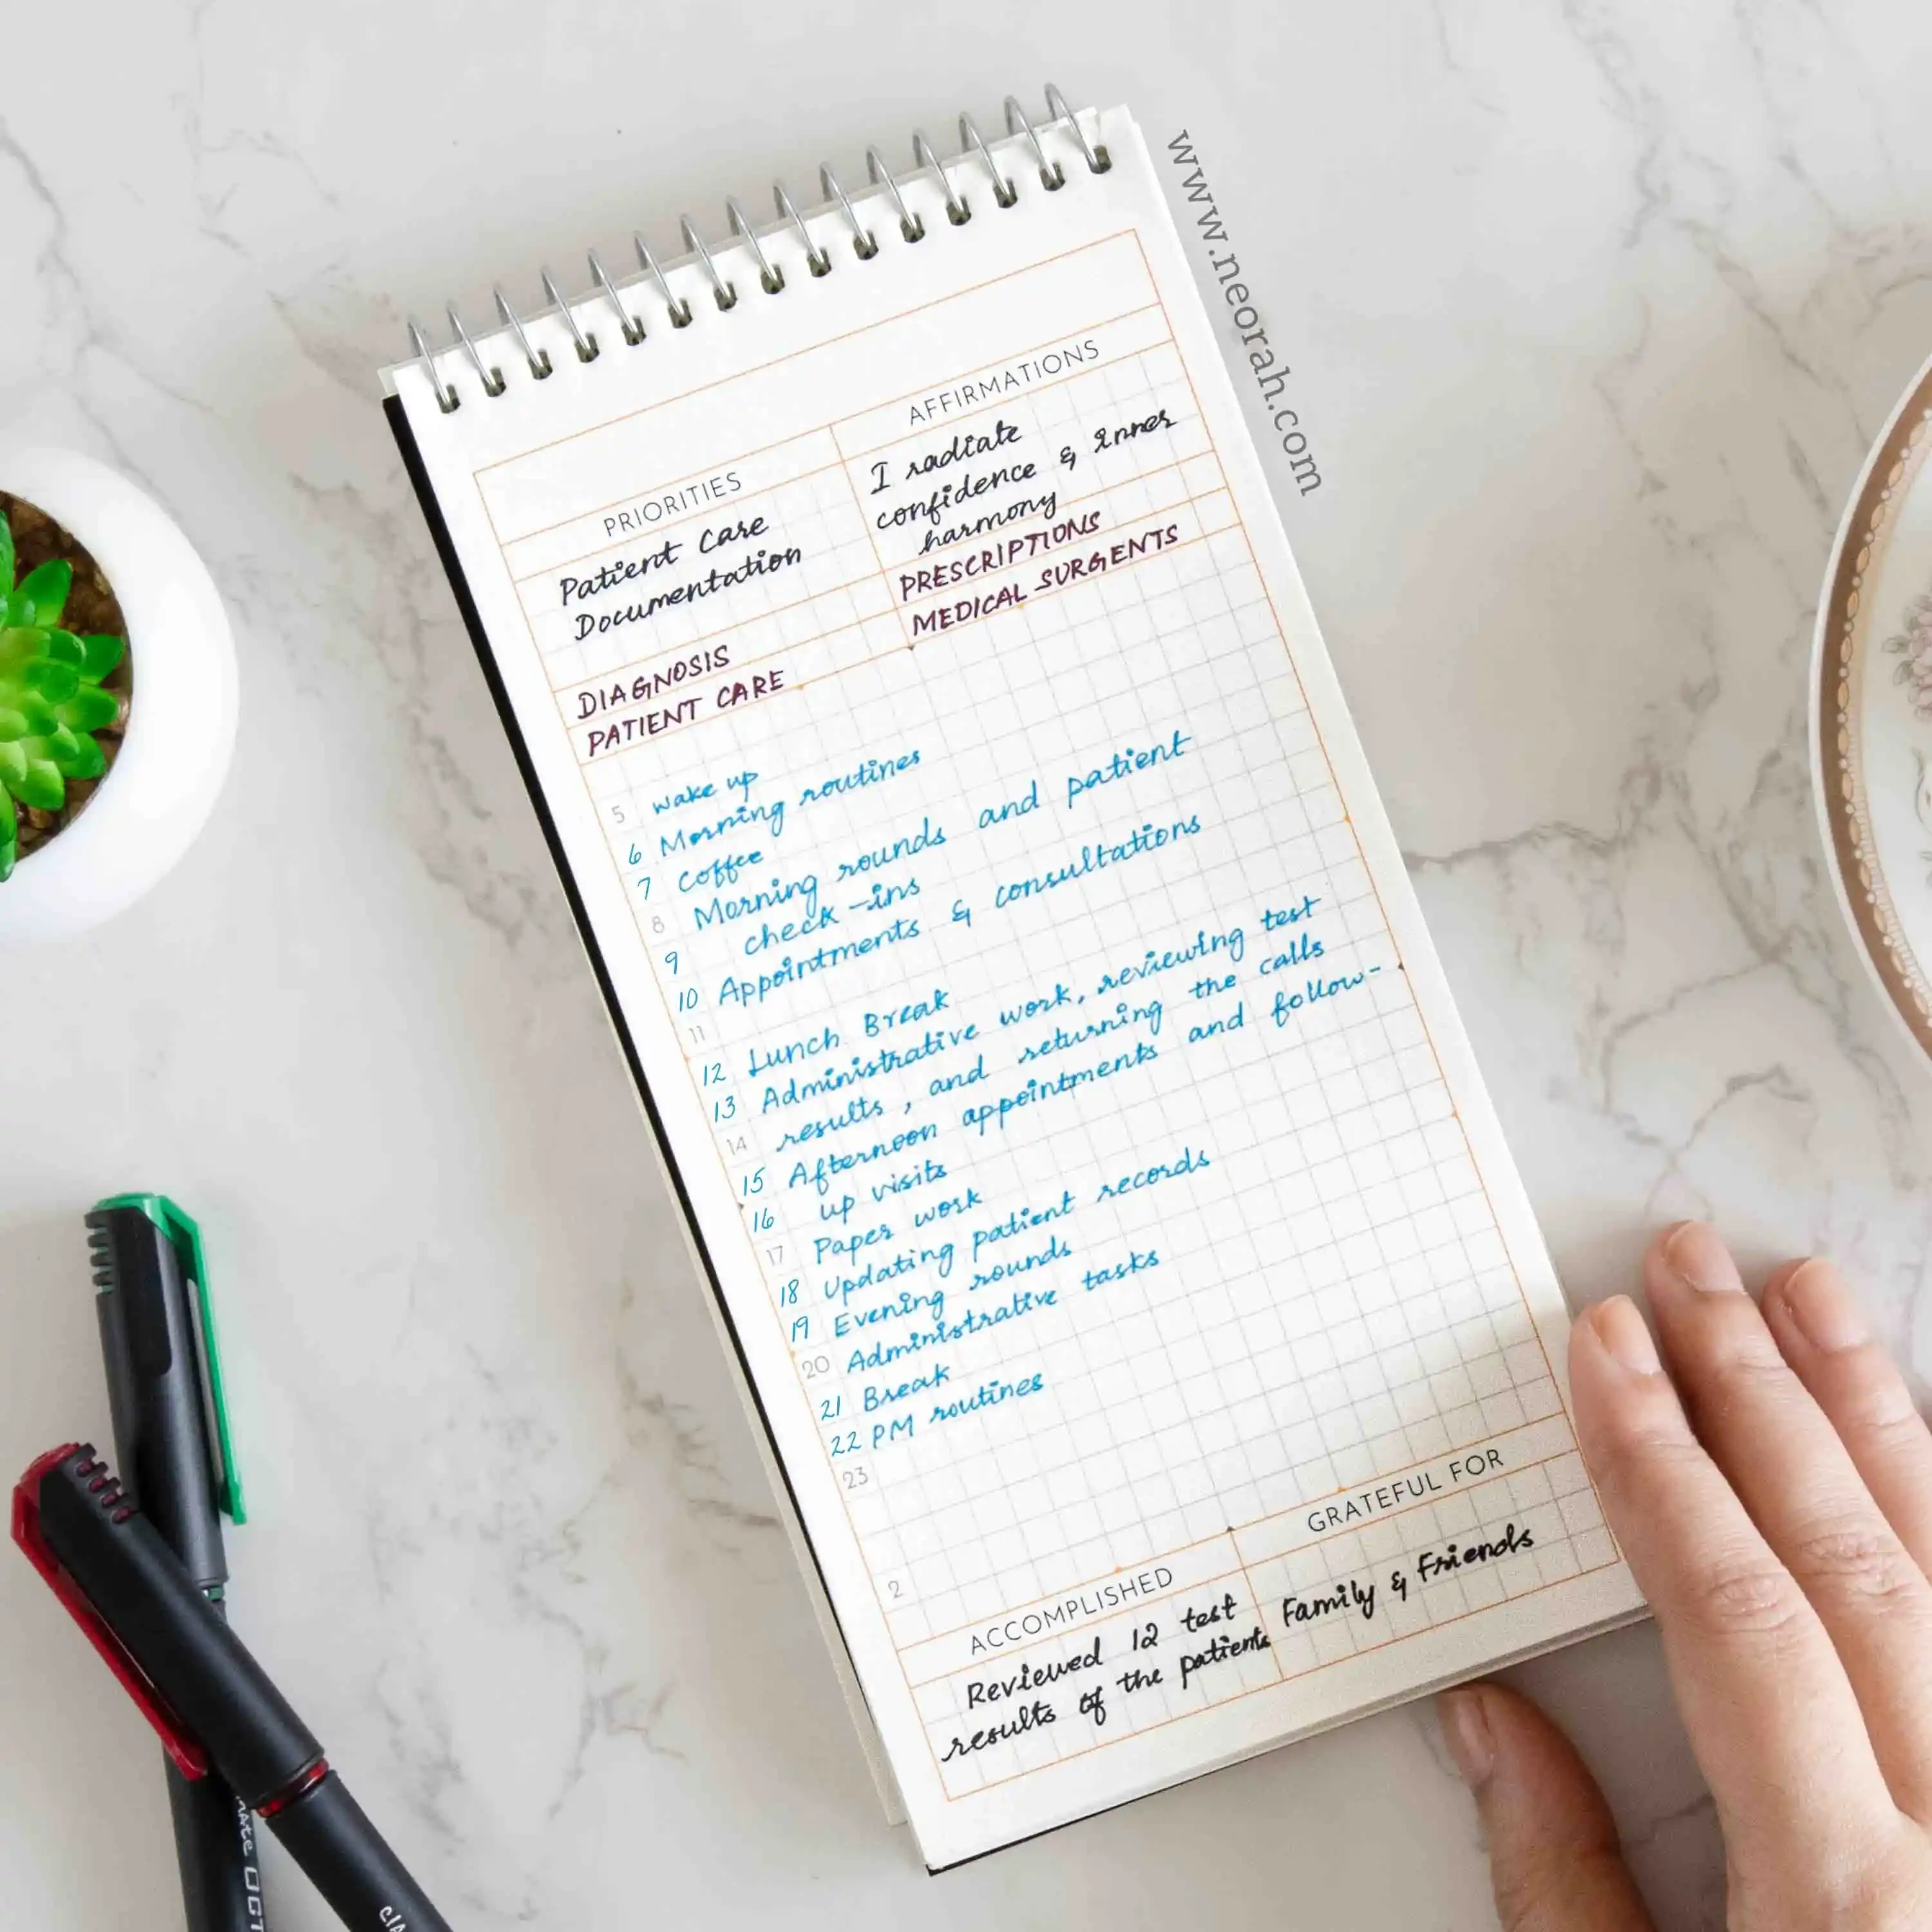 www.neorah.com
PRIORITIES
Patient Care
Documentation
AFFIRMATIONS
I radiate
confidence & inner
harmony
DIAGNOSIS
PATIENT CARE
PRESCRIPTIONS
MEDICAL SURGENTS
5 wake up
6 Morning routines
7 coffee
8 Morning rounds and patient
9 check-ins
10 Appointments & consultations
11
12 Lunch Break
13 Administrative work, reviewing test
14 results, and returning the calls
15 Afternoon appointments and follow-
16 up visits
17 Paper work
18 Updating patient records
19 Evening rounds
20 Administrative tasks
21 Break
22 PM routines
23
2
ACCOMPLISHED
Reviewed 12 test
results of the patients
GRATEFUL FOR
Family & Friends